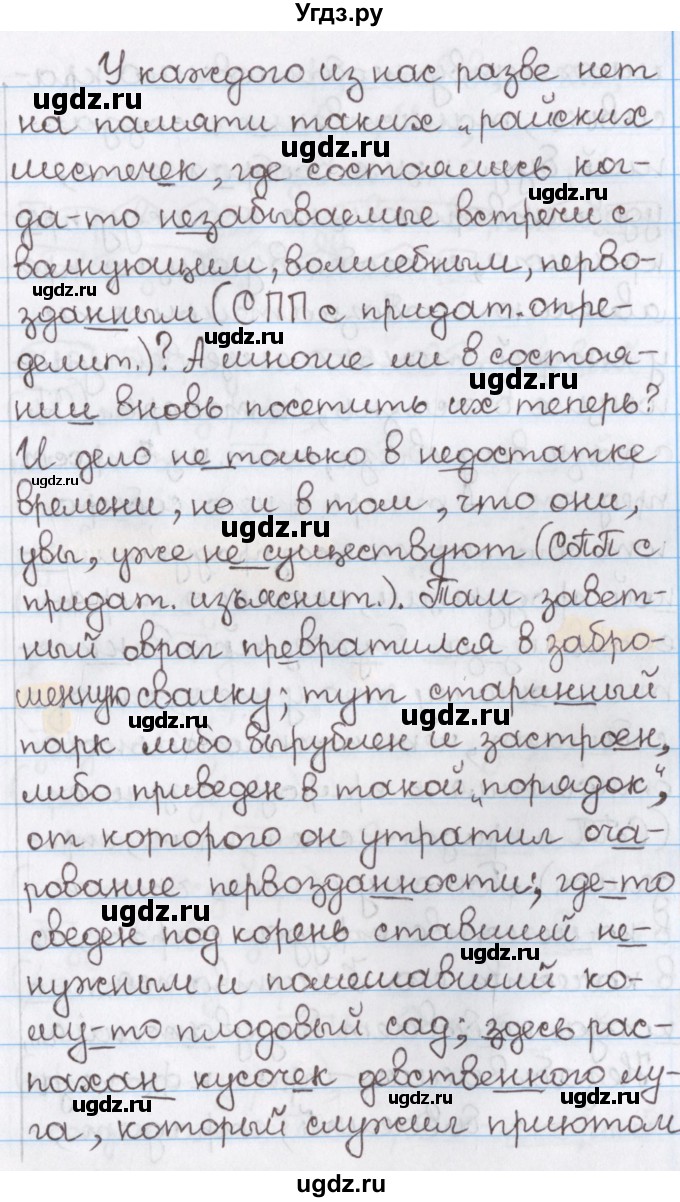 Угдз.ру
У каждого из нас разве нет
ugdz.ru
на памяти таких „райских
ugdz.ru
местечек, где состоялись ког-
ugdz.ru
да-то незабываемые встречи с
волнующим, волшебным, перво-
ugdz.ru
зданным (СПП с придат. опре-
ugdz.ru
делит.)? А многие ли в состоя-
ugdz.ru
нии вновь посетить их теперь?
И дело не только в недостатке
ugdz.ru
времени, но и в том, что они,
ugdz.ru
увы, уже не существуют (СПП с
придат. изъяснит.). Там завет-
ный овраг превратился в забро-
шенную свалку; тут старинный
ugdz.ru
ugdz.ru
парк либо вырублен и застроен,
либо приведен в такой „порядок“,
от которого он утратил оча-
рование первозданности; где-то
ugdz.ru
сведен под корень ставший не-
ugdz.ru
нужным и помешавший ко-
му-то плодовый сад; здесь рас-
пахан кусочек девственного лу-
ugdz.ru
ugdz.ru
ugdz.ru
га, который служил приютом
ugdz.ru